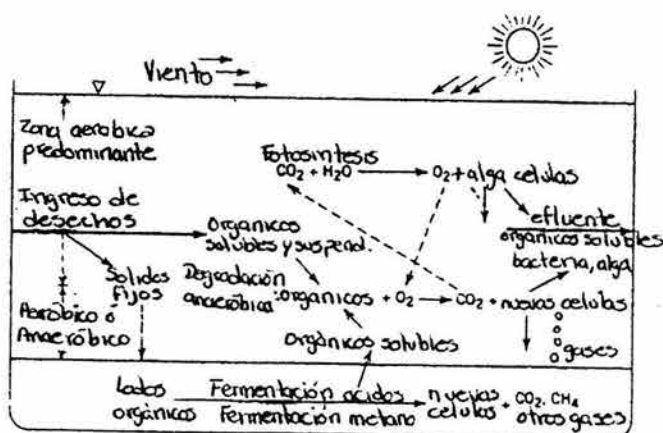 Viento
Zona aerobica
predominante
Fotosintesis
CO₂ + H₂O → O₂ + alga celulas
Ingreso de
desechos
Organicos
solubles y suspend.
efluente
organicos solubles
bacteria, alga
Solidos
fijos
Degradación
anaeróbica
organicos + O₂ → CO₂ + nuevas celulas
Aeróbico ó
Anaeróbico
Orgánicos solubles
gases
Lodos
orgánicos
Fermentación acidos
Fermentación metano
nuevas
celulas + CO₂. CH₄
otros gases